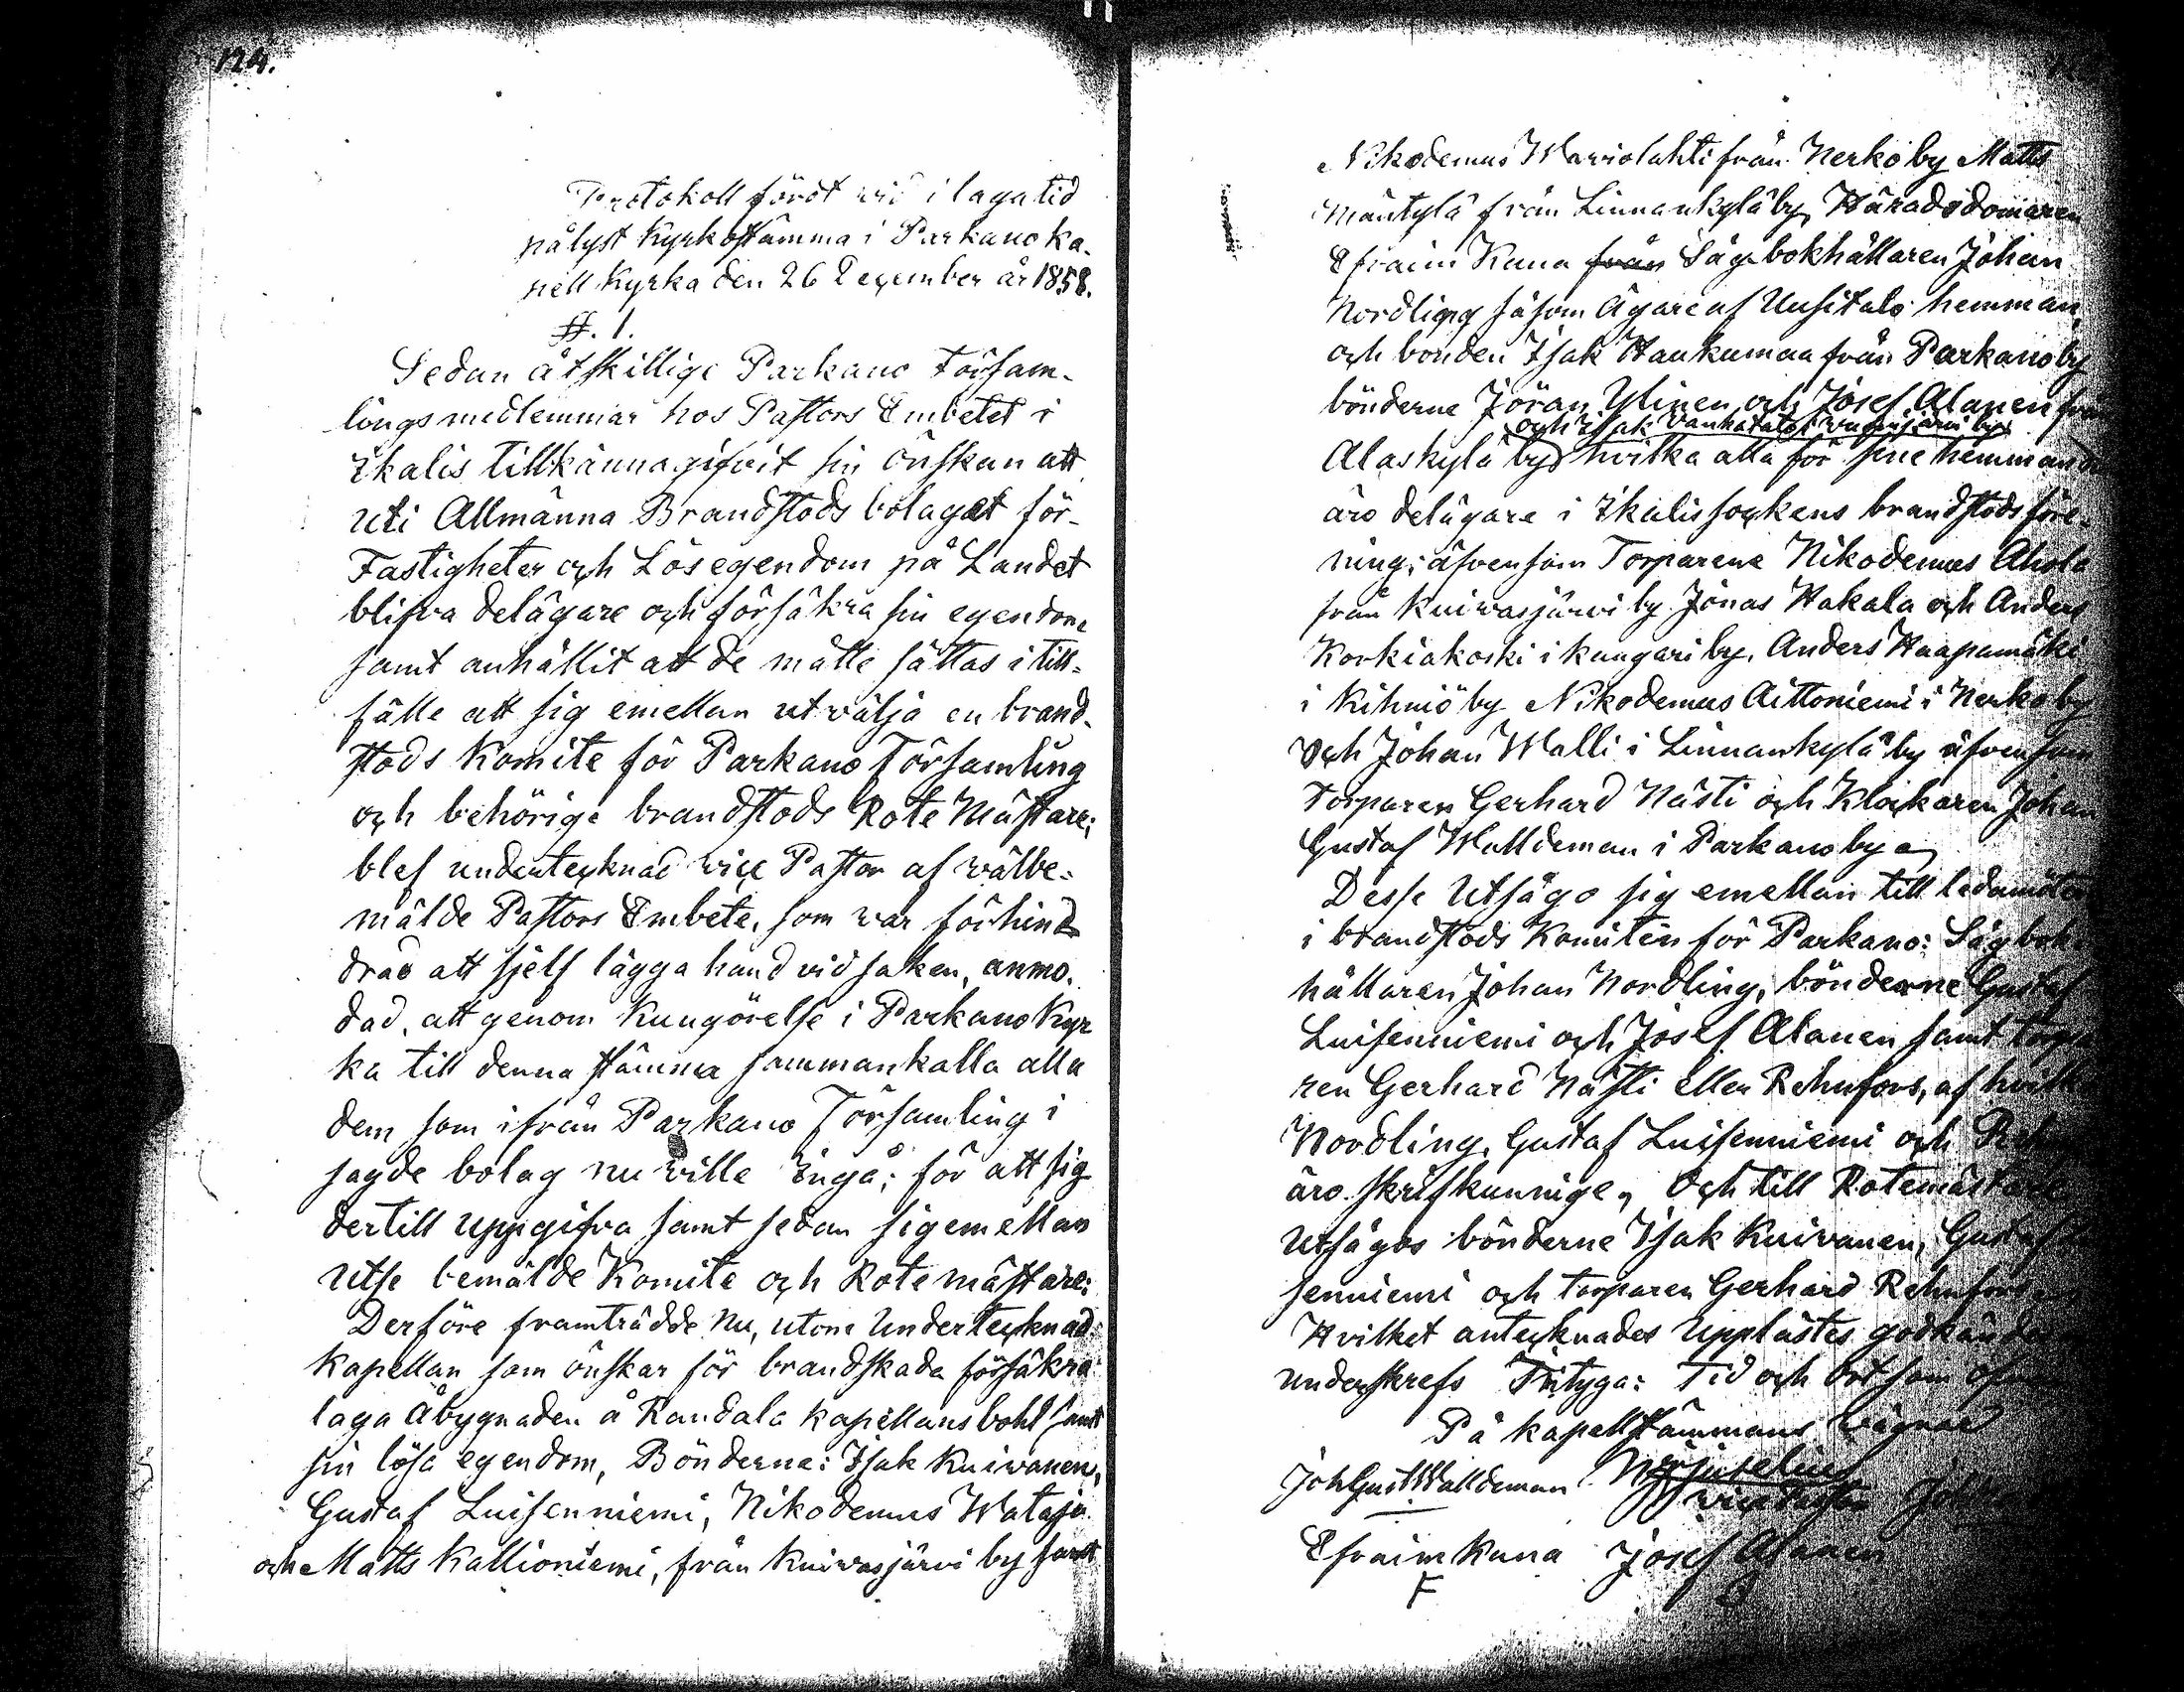 124.
Protokoll fördt vid i laga tid
pålyst Kyrkostämma i Parkano ka-
pell Kyrka den 26 December år 1858.
§. 1.
Sedan åtskillige Parkano Försam-
lings medlemmar hos Pastors Embetet i
Ikalis tillkännagifvit sin önskan att
uti Allmänna Brandstods bolaget för
Fastigheter och Lösegendom på Landet
blifva delägare och försäkra sin egendom
samt anhållit att de måtte sättas i till-
fälle att sig emellan utvälja en brand-
stods Komite för Parkano Församling
och behörige brandstods Rote Mästare;
blef undertecknad vice Pastor af välbe-
mälde Pastors Embete, som var förhind-
drad att sjelf lägga hand vid saken, anmo-
dad, att genom Kungörelse i Parkano Kyr
ka till denna stämma sammankalla alla
dem som ifrån Parkano Församling i
sagde bolag nu ville Ingå; för att sig
dertill uppgifva samt sedan sig emellan
utse bemälde Komite och Rote mästare:
Derföre framträdde Nu, utom Undertecknad
Kapellan som önskar för brandskada försäkra
laga Åbygnaden å Randala Kapellans bohl samt
sin lösa egendom, Bönderna: Isak Kuivanen,
Gustaf Luisenniemi, Nikodemus Wataja
och Matts Kallioniemi, från Kuivasjärvi by samt
Nikodemus Warvolahti från Nerko by Matts
Mäntylä från Linnankylä by, Häradsdomaren
Efraim Kuna från Sågbokhållaren Johan
Nordling såsom Ägare af Uusitalo hemman,
och bonden Isak Haukuman från Parkano by
bönderne Jöran Ylinen och Josef Alanen från
och Isak Vanhatalo i Vuorijärvi by
Alaskylä by hvilka alla för sine hemman
äro delägare i Ikalis sockens brandstods före-
ning; äfvensom Torparene Nikodemus Ahola
från Kuivasjärvi by Jonas Hakala och Anders
Korkiakoski i Kangari by, Anders Haapamäki
i Kihniö by Nikodemus Aittoniemi i Nerko by
och Johan Walli i Linnankylä by äfvensom
Torparen Gerhard Nästi och Klockaren Johan
Gustaf Walldeman i Parkano by
Desse Utsågo sig emellan till ledamöter
i brandstods Komitén för Parkano: Sågbok-
hållaren Johan Nordling, bönderne Gustaf
Luisenniemi och Josef Alanen samt torpa
ren Gerhard Nästi eller Rehnfors, af hvilka
Nordling, Gustaf Luisenniemi och
äro skrifkunnige, Och till Rotemästare
Utsågos bönderne Isak Kuivanen, Gustaf
senniemi och torparen Gerhard Rehnfors
Hvilket antecknades Upplästes godkändes
underskrefs Intyga: Tid och Ort som ofvan
På kapellstämmans vägnar
Joh Gust Walldeman vice Pastor
Efraim Kuna Josef Alanen